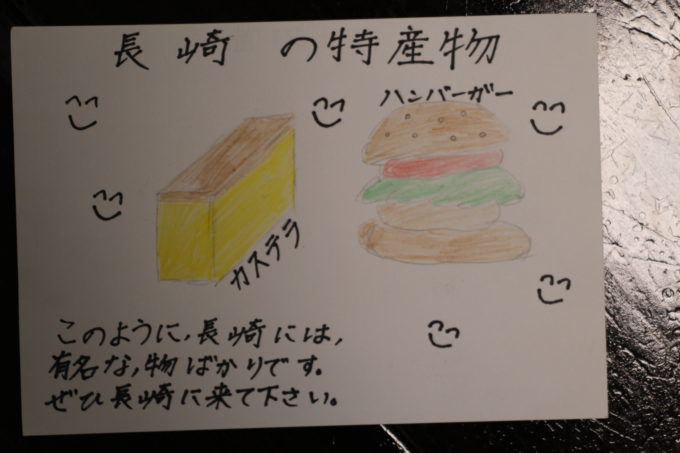 長崎の特産物
ハンバーガー
カステラ
このように,長崎には,
有名な,物ばかりです。
ぜひ長崎に来て下さい。